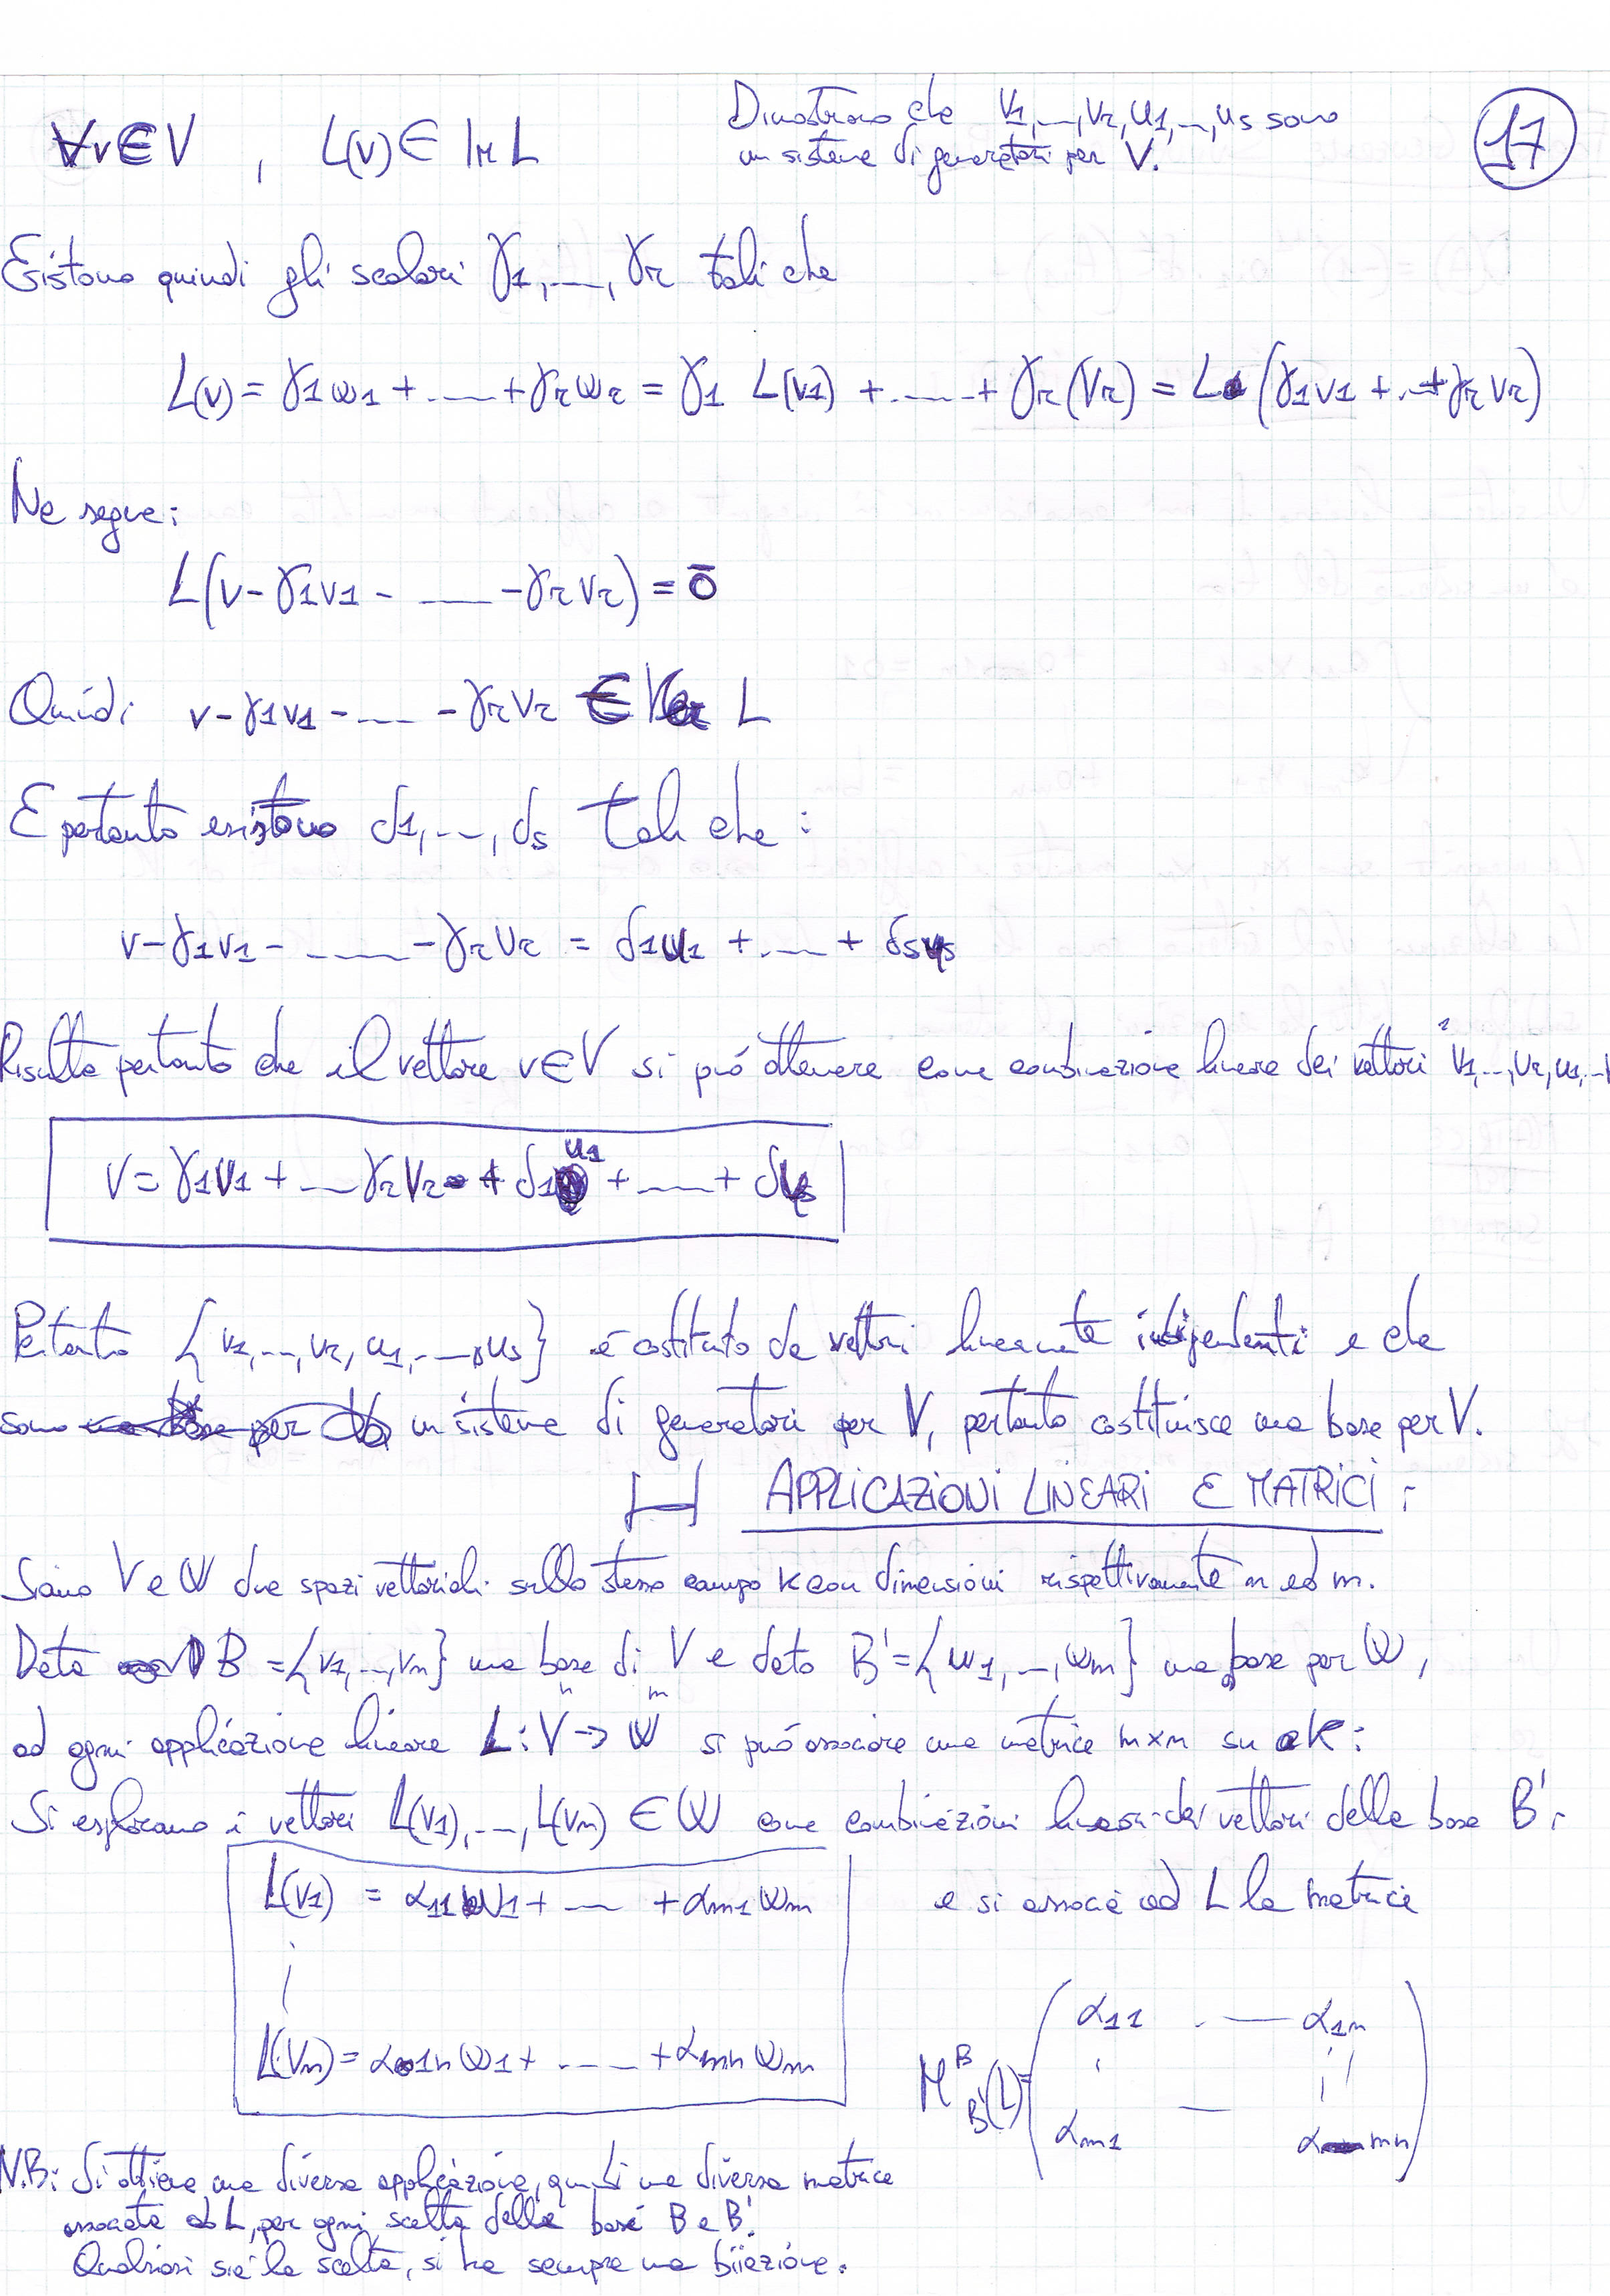 ∀v∈V , L(v)∈ Im L
Dimostriamo che v1,...,vr,u1,...,us sono
un sistema di generatori per V.
17
Esistono quindi gli scalari γ1,...,γr tali che
L(v) = γ1w1 + ..... + γrwr = γ1 L(v1) + ..... + γr(vr) = L(γ1v1 + ... + γrvr)
Ne segue:
L(v - γ1v1 - ..... - γrvr) = 0̄
Quindi v - γ1v1 - ..... - γrvr ∈ Ker L
E pertanto esistono δ1,...,δs tali che:
v - γ1v1 - ..... - γrvr = δ1u1 + ..... + δsus
Risulta pertanto che il vettore v∈V si può ottenere come combinazione lineare dei vettori v1,...,vr,u1,...
v = γ1v1 + ... γrvr + δ1u1 + ..... + δus
Pertanto {v1,...,vr,u1,...,us} è costituito da vettori linearmente indipendenti e che
sono un sistema di generatori per V, pertanto costituisce una base per V.
APPLICAZIONI LINEARI E MATRICI:
Siano V e W due spazi vettoriali sullo stesso campo K con dimensioni rispettivamente n ed m.
Data B = {v1,...,vn} una base di V e dato B' = {w1,...,wm} una base per W,
n m
ad ogni applicazione lineare L: V → W si può associare una matrice m×n su K:
Si esplicano i vettori L(v1),...,L(vn) ∈ W come combinazioni lineari dei vettori della base B':
L(v1) = α11w1 + ..... + αm1wm
e si associa ad L la matrice
L(vn) = α1nw1 + ..... + αmnwm
α11 ..... α1n
M^B_B'(L) =
αm1 ..... αmn
N.B: Si ottiene una diversa applicazione, quindi una diversa matrice
associata ad L, per ogni scelta delle basi B e B'.
Qualsiasi sia la scelta, si ha sempre una biiezione.